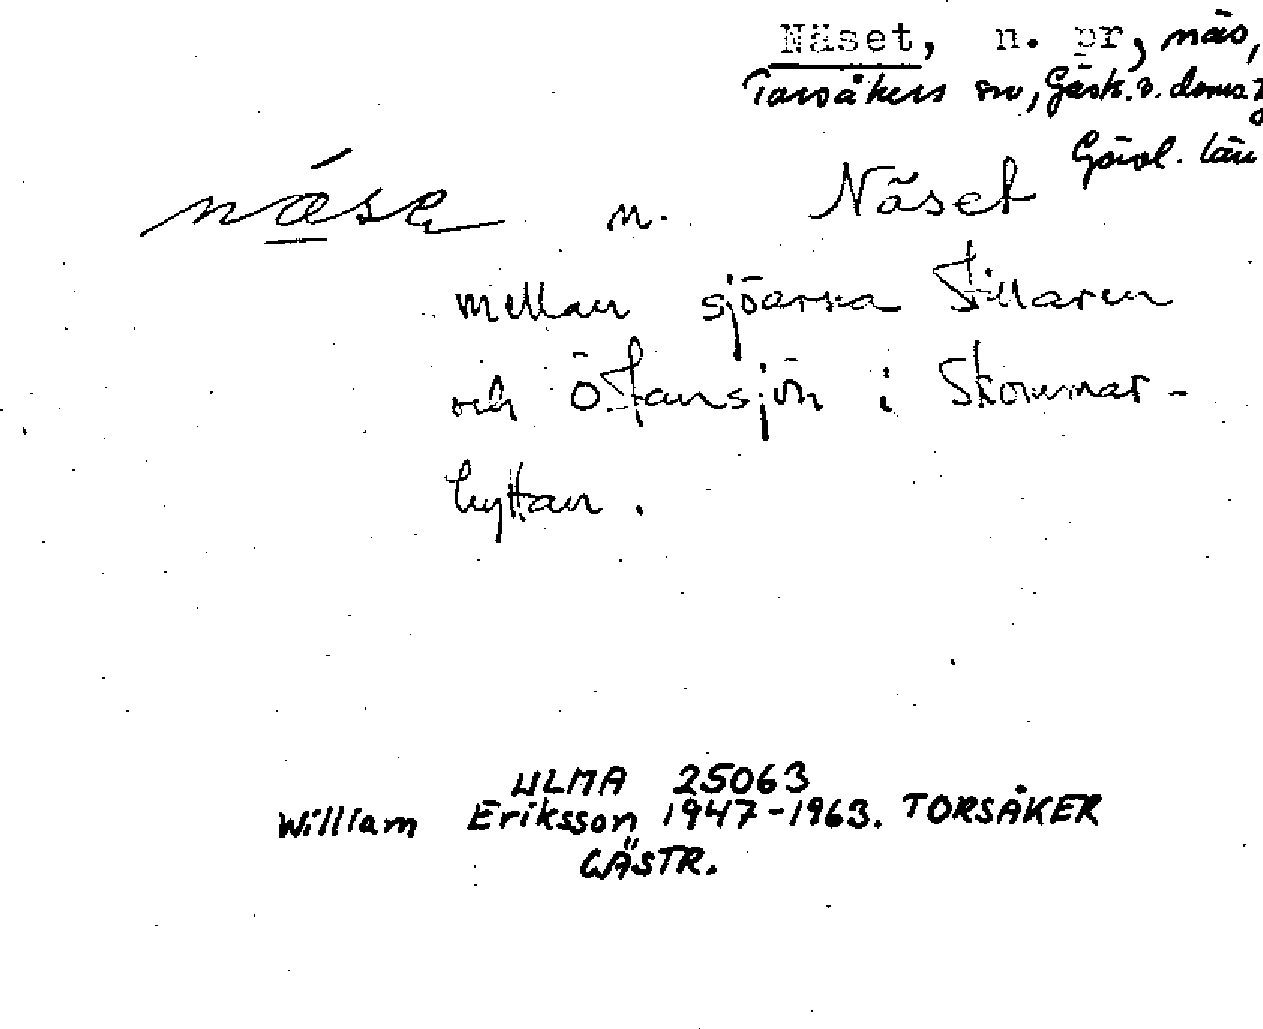 Näset, n. pr, näs,
Torsåkers sn, Gästr. ö. doms.
Gävl. län
næ´sɐ n. Näset
mellan sjöarna Fillaren
och Ötansjön i Skommar-
hyttan.
ULMA 25063
William Eriksson 1947-1963. TORSÅKER
GÄSTR.